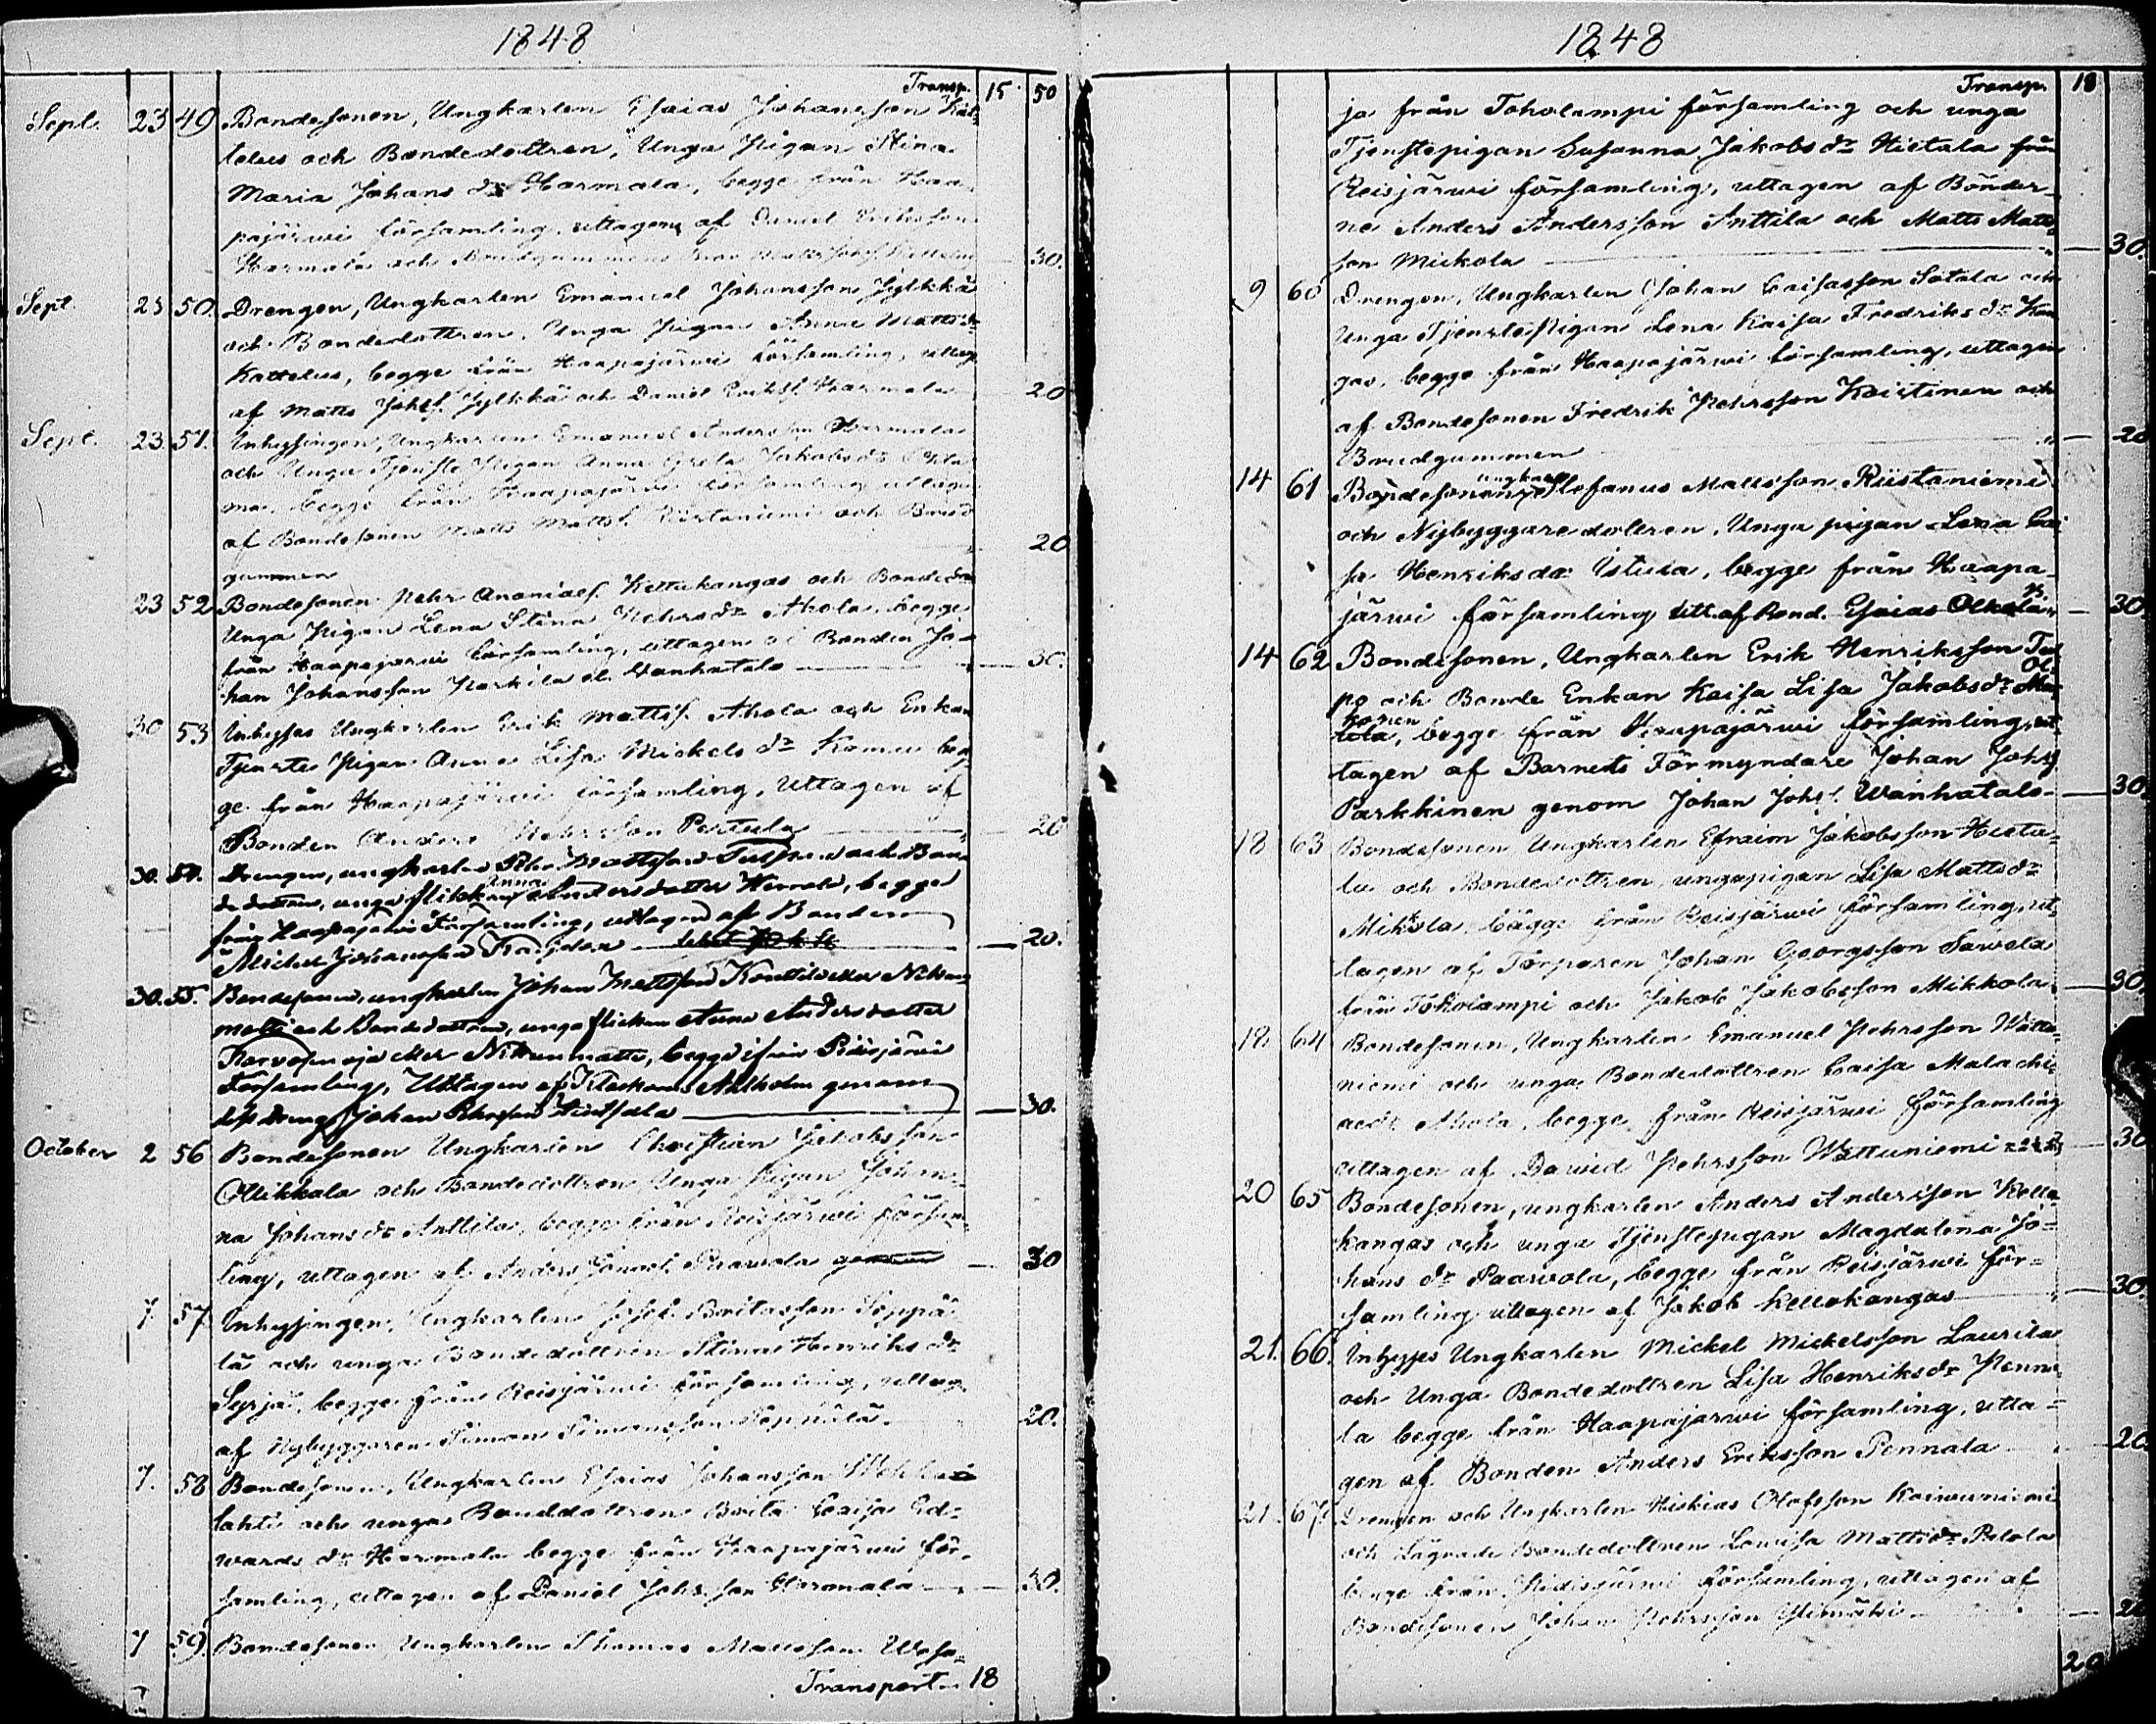 1848
Transp. 15 50
Sept. 23 49 Bondesonen, Ungkarlen Esaias Johansson Kat-
telus och Bondedottren, Unga Pigan Stina
Maria Johans dr Harmala, begge från Haa-
pajärwi församling, uttagen af Daniel Eriksson
Harmala och Brudgummens 30.
Sept. 23 50. Drengen, Ungkarlen Emanuel Johansson Jylkkä
och Bondedottren, Unga Pigan Anna Matts dr
Kattelus, begge från Haapajärwi församling, uttag
af Matts Johss. Jylkkä och Daniel Erikss. Harmala 20
Sept. 23. 51. Inhysingen, Ungkarlen Emanuel Andersson Harmala
och Unga Tjenste Pigan Anna Greta Jakobs dr
ma, begge från Haapajärwi församling uttagen
af Bondesonen Matts Mattss. Ristaniemi och Brud
gummen 20
23 52 Bondesonen Pehr Ananiass. Kettukangas och Bondedr
Unga Pigan Lena Stina Pehrs dr Ahola, begge
från Haapajärwi församling, uttagen af Bonden Jo-
han Johansson Parkila el. Wanhatalo 30.
30 53 Inhyses Ungkarlen Erik Mattss. Ahola och Enkan
Tjenste Pigan Anna Lisa Mickels dr Komu beg
ge från Haapajärwi församling, uttagen af
Bonden Anders Pehrsson Pertula 20
30. 54. Drengen, ungkarlen Pehr Mattsson och Bon
de dottren, unga flickan Anna Andersdotter begge
från Haapajärwi Församling, uttagen af Bonden
Michel Johansson 20.
30. 55. Bondesonen, ungkarlen Johan Mattsson Konttila eller
matti och Bondedottren, unga flickan Anna Andersdotter
eller begge ifrån Pidisjärwi
Församling, Uttagen af Klockaren Ahlholm genom
dess dräng Johan Pehrsson 30.
October 2 56 Bondesonen Ungkarlen Christian Jakobsson
Ollikkala och Bondedottren Unga Pigan Johan
na Johans dr Anttila, begge från Reisjärwi försam
ling, uttagen af Anders Paavola genom 30
7. 57 Inhysingen, Ungkarlen Josef Britasson Seppä
lä och unga Bondedottren Stina Henriks dr
Syrjä, begge från Reisjärwi församling, uttag
af Nybyggaren Simon Simonsson Seppälä 20.
7. 58 Bondesonen, Ungkarlen Esaias Johansson
lahti och unga Bonddottren Brita Caisa Ed-
wards dr Harmala begge från Haapajärwi för-
samling, uttagen af Daniel Johsson Harmala 30.
7 59. Bondesonen Ungkarlen Thomas Mattsson
Transport 18
1848
Transp. 18
ja från Toholampi församling och unga
Tjenstepigan Susanna Jakobs dr Hietala från
Reisjärwi församling, uttagen af Bönder
ne Anders Andersson Anttila och Matts Matts
son Mickola 30.
9 60 Drengen, Ungkarlen Johan Caisasson Sotala och
Unga Tjenstepigan Lena Kaisa Fredriks dr Kan
gas, begge från Haapajärwi församling, uttagen
af Bondesonen Fredrik Pehrsson Koistinen och
Brudgummen 20
14 61 Bondesonen, ungkarl Stefanus Mattsson Ristaniemi
och Nybyggaredottren, Unga pigan Lena Cai
sa Henriksdr begge från Haapa-
järwi församling utt. af Bond. Esaias Olkola 30
14 62 Bondesonen, Ungkarlen Erik Henriksson
po och Bonde Enkan Kaisa Lisa Jakobs dr
begge från Haapajärwi församling, ut
tagen af Barnets Förmyndare Johan Johss
Parkkinen genom Johan Johss. Wanhatalo 30.
18 63 Bondesonen Ungkarlen Efraim Jakobsson Hieta-
la och Bondedottren, ungapigan Lisa Matts dr
Mikkola, bägge från Reisjärwi församling, ut
tagen af Torparen Johan Georgsson Sawela
från Toholampi och Jakob Jakobsson Mikkola 30.
18 64 Bondesonen, Ungkarlen Emanuel Pehrsson Wättu
niemi och unga Bondedottren Caisa Malachi
ædr Ahola, begge från Reisjärwi församling
uttagen af Dawid Pehrsson Wättuniemi 30
20 65 Bondesonen, ungkarlen Anders Andersson Kello
kangas och unga Tjenstepigan Magdalena Jo-
hans dr Paavola, begge från Reisjärwi för-
samling uttagen af Jakob Kellokangas 30.
21. 66. Inhyses Ungkarlen Mickel Mickelsson Laurila
och Unga Bondedottren Lisa Henriks dr Penna
la begge från Haapajärwi församling, utta-
gen af Bonden Anders Eriksson Pennala 20
21. 67 Drengen och Ungkarlen Hiskias Olofsson Kaiwuniemi
och Lägrade Bondedottren Lowisa Matts dr Palola
begge från Pidisjärwi församling, uttagen af
Bondesonen Johan Pehrsson 20
20